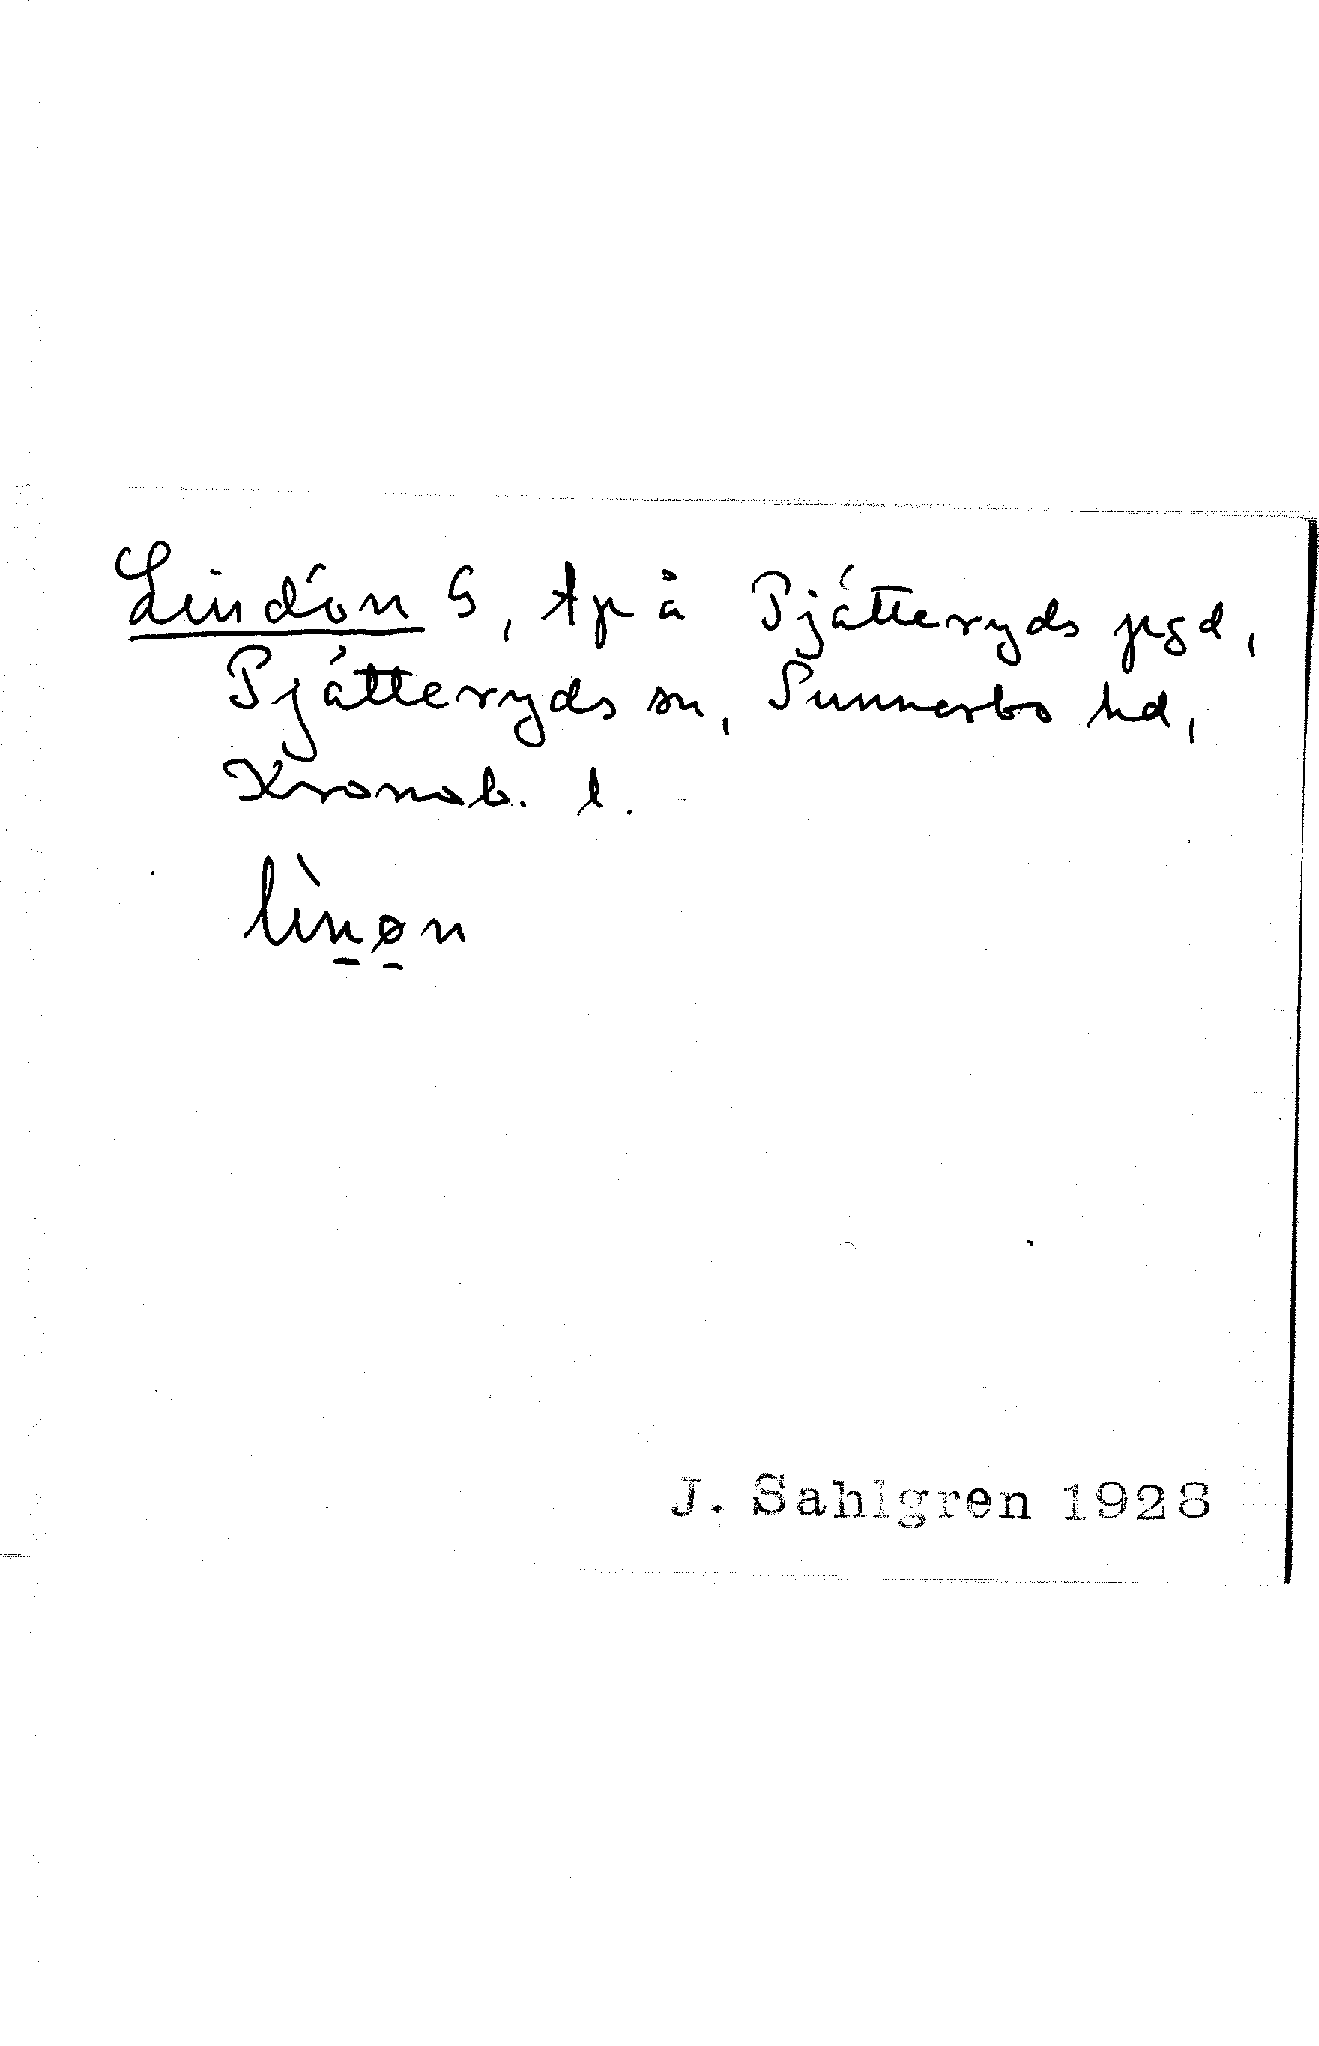 Lindön G, tp å Pjätteryds pgd,
Pjätteryds sn, Sunnerbo hd,
Kronob. l.
lìnøn
J. Sahlgren 1928